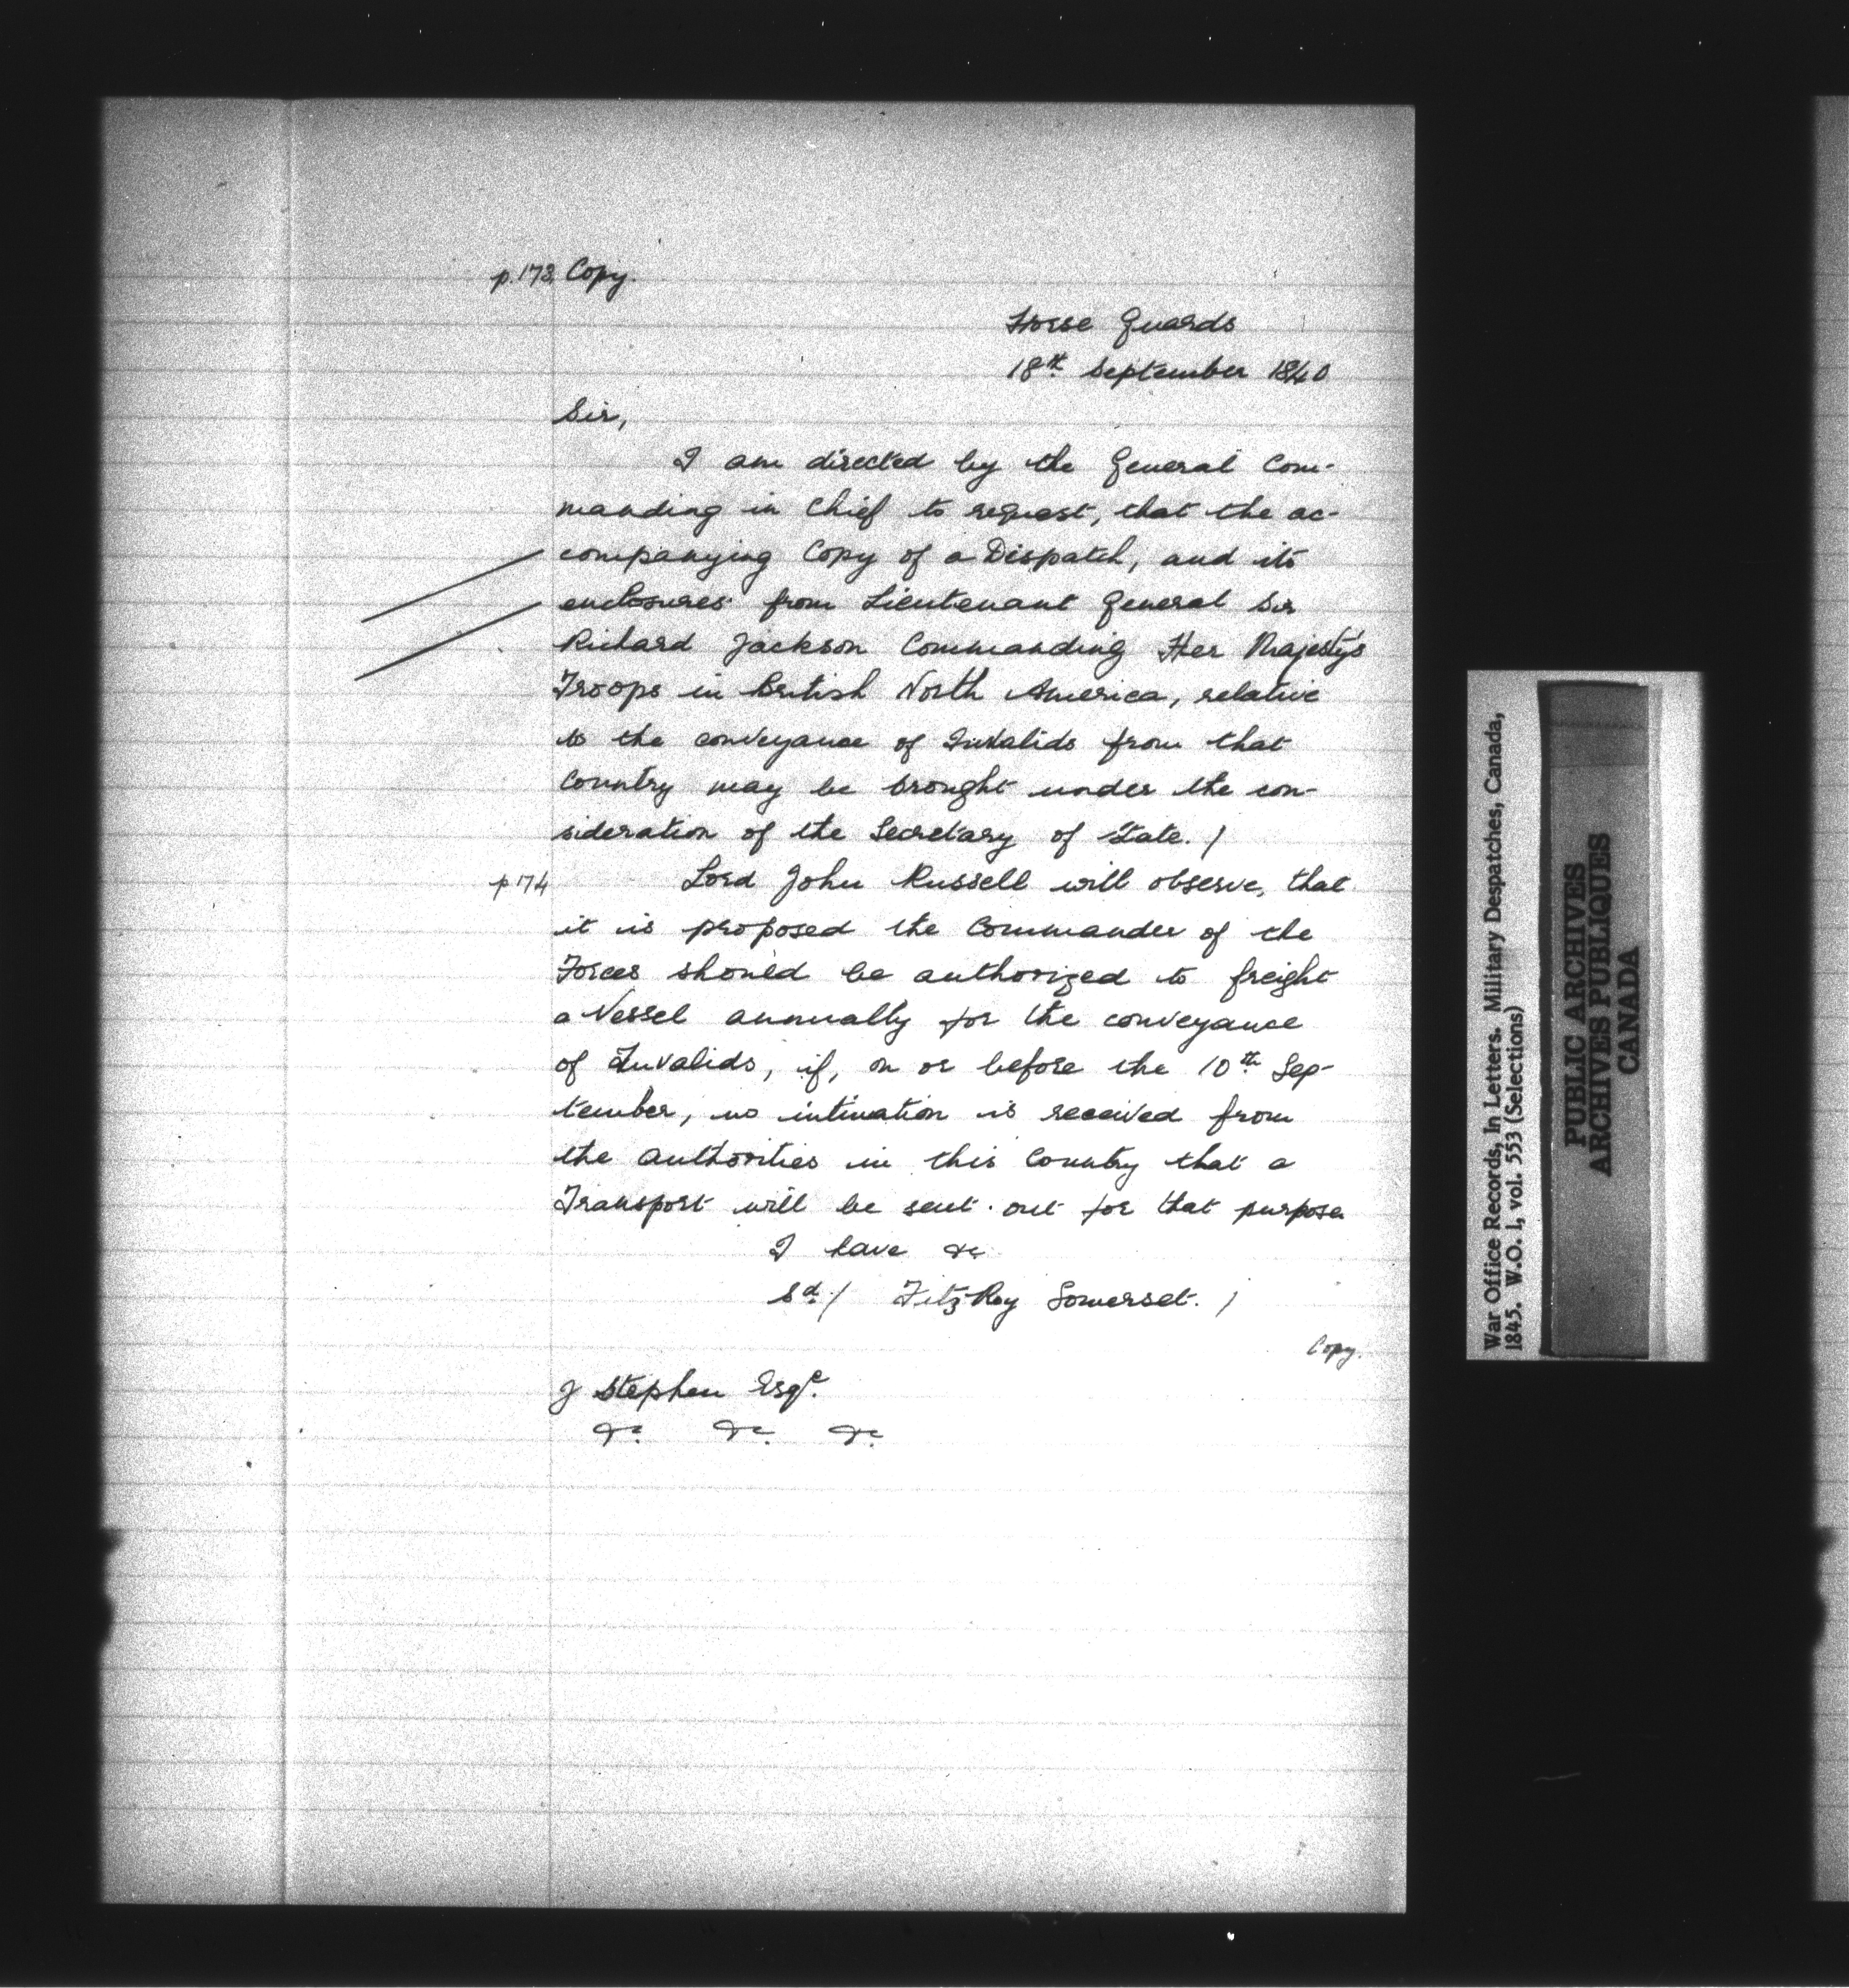 p.173 Copy.
Horse Guards
18th September 1840
Sir,
I am directed by the General Com-
manding in Chief to request, that the ac-
companying Copy of a Dispatch, and its
enclosures from Lieutenant General Sir
Richard Jackson Commanding Her Majesty's
Troops in British North America, relative
to the conveyance of Invalids from that
Country may be brought under the con-
sideration of the Secretary of State. /
p 174 Lord John Russell will observe, that
it is proposed the Commander of the
Forces should be authorized to freight
a Vessel annually for the conveyance
of Invalids, if, on or before the 10th Sep-
tember, no intimation is received from
the authorities in this Country that a
Transport will be sent out for that purpose
I have &c
Sd / FitzRoy Somerset. /
Copy.
J Stephen Esqe.
&c. &c. &c.
War Office Records, In Letters. Military Despatches, Canada,
1845. W.O. 1, vol. 553 (Selections)
PUBLIC ARCHIVES
ARCHIVES PUBLIQUES
CANADA